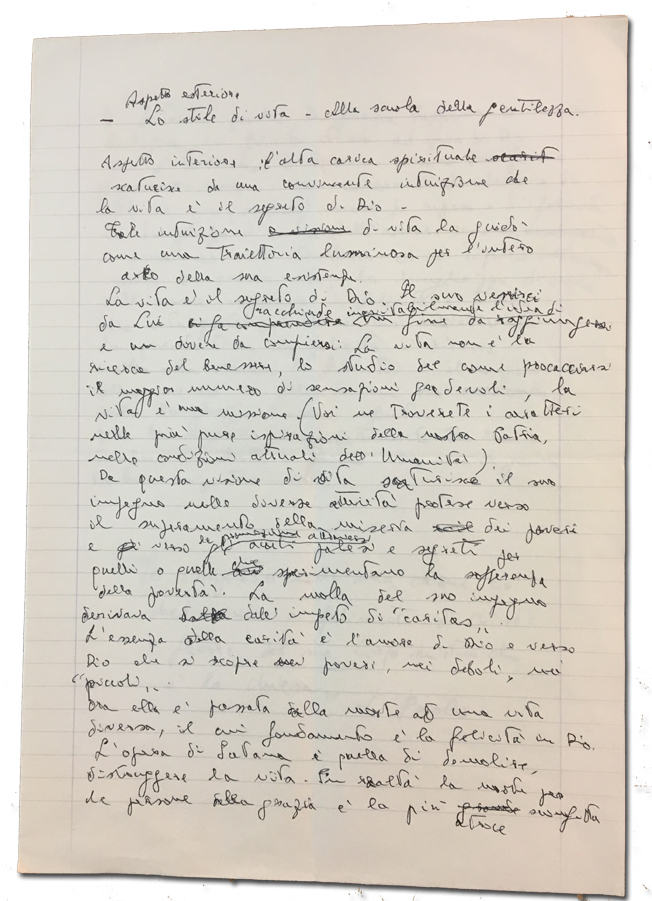 Aspetto esteriore
- Lo stile di vita - Alla scuola della gentilezza.
Aspetto interiore: l'alta carica spirituale
scaturisce da una convincente intuizione che
la vita è il segreto di Dio -
Tale intuizione e visione di vita la guidò
come una traiettoria luminosa per l'intero
arco della sua esistenza.
La vita è il segreto di Dio. Il suo
racchiude inevitabilmente l'idea di
da Lui ci fa comprendere un fine da raggiungere
e un dovere da compiersi: La vita non è la
ricerca del benessere, lo studio del come procacciarsi
il maggior numero di sensazioni gradevoli, la
vita è una missione. (Voi ne troverete i caratteri
nelle più pure ispirazioni della nostra Patria,
nelle condizioni attuali dell'Umanità).
Da questa visione di vita scaturisce il suo
impegno nelle diverse attività protese verso
il superamento della miseria dei poveri
e verso le promozioni attraverso
gli aiuti palesi e segreti per
quelli o quelle che sperimentano la sofferenza
della povertà. La molla del suo impegno
derivava dalla dall'impeto di "caritas".
L'essenza della carità è l'amore di Dio e verso
Dio che si scopre nei poveri, nei deboli, nei
"piccoli"
Ora ella è passata dalla morte ad una vita
diversa, il cui fondamento è la felicità in Dio.
L'opera di Satana è quella di demolire,
distruggere la vita. In realtà la morte per
le persone della grazia è la più grande sconfitta
atroce